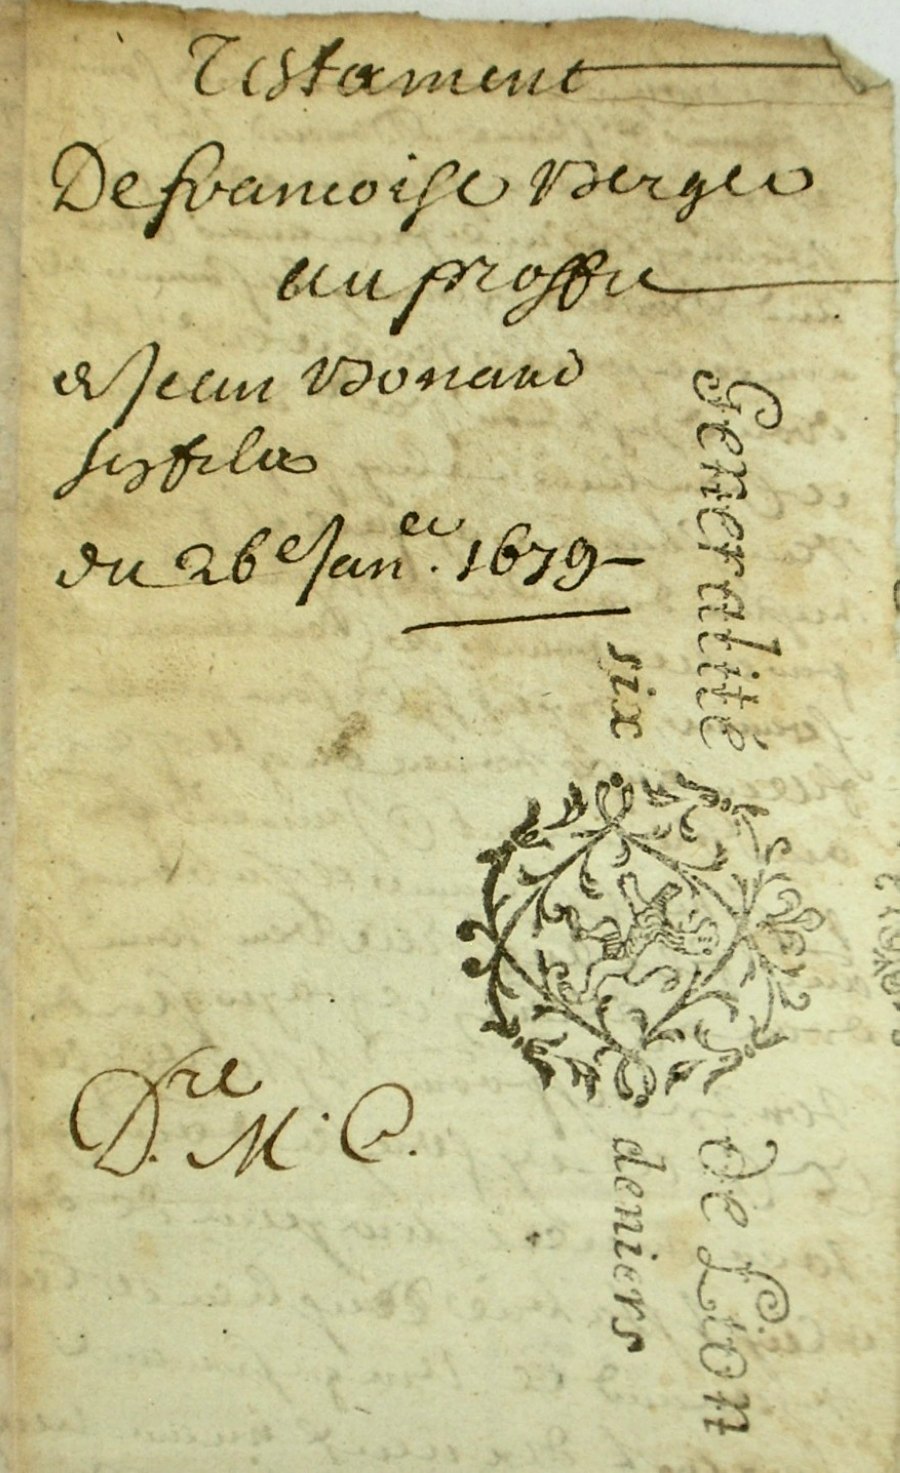 Testament
De francoise Berger
au proffit
de Jean Bonard
ses fila
du 26e Janer. 1679
Generalité de Lion
six deniers
Dre
D. M. C.